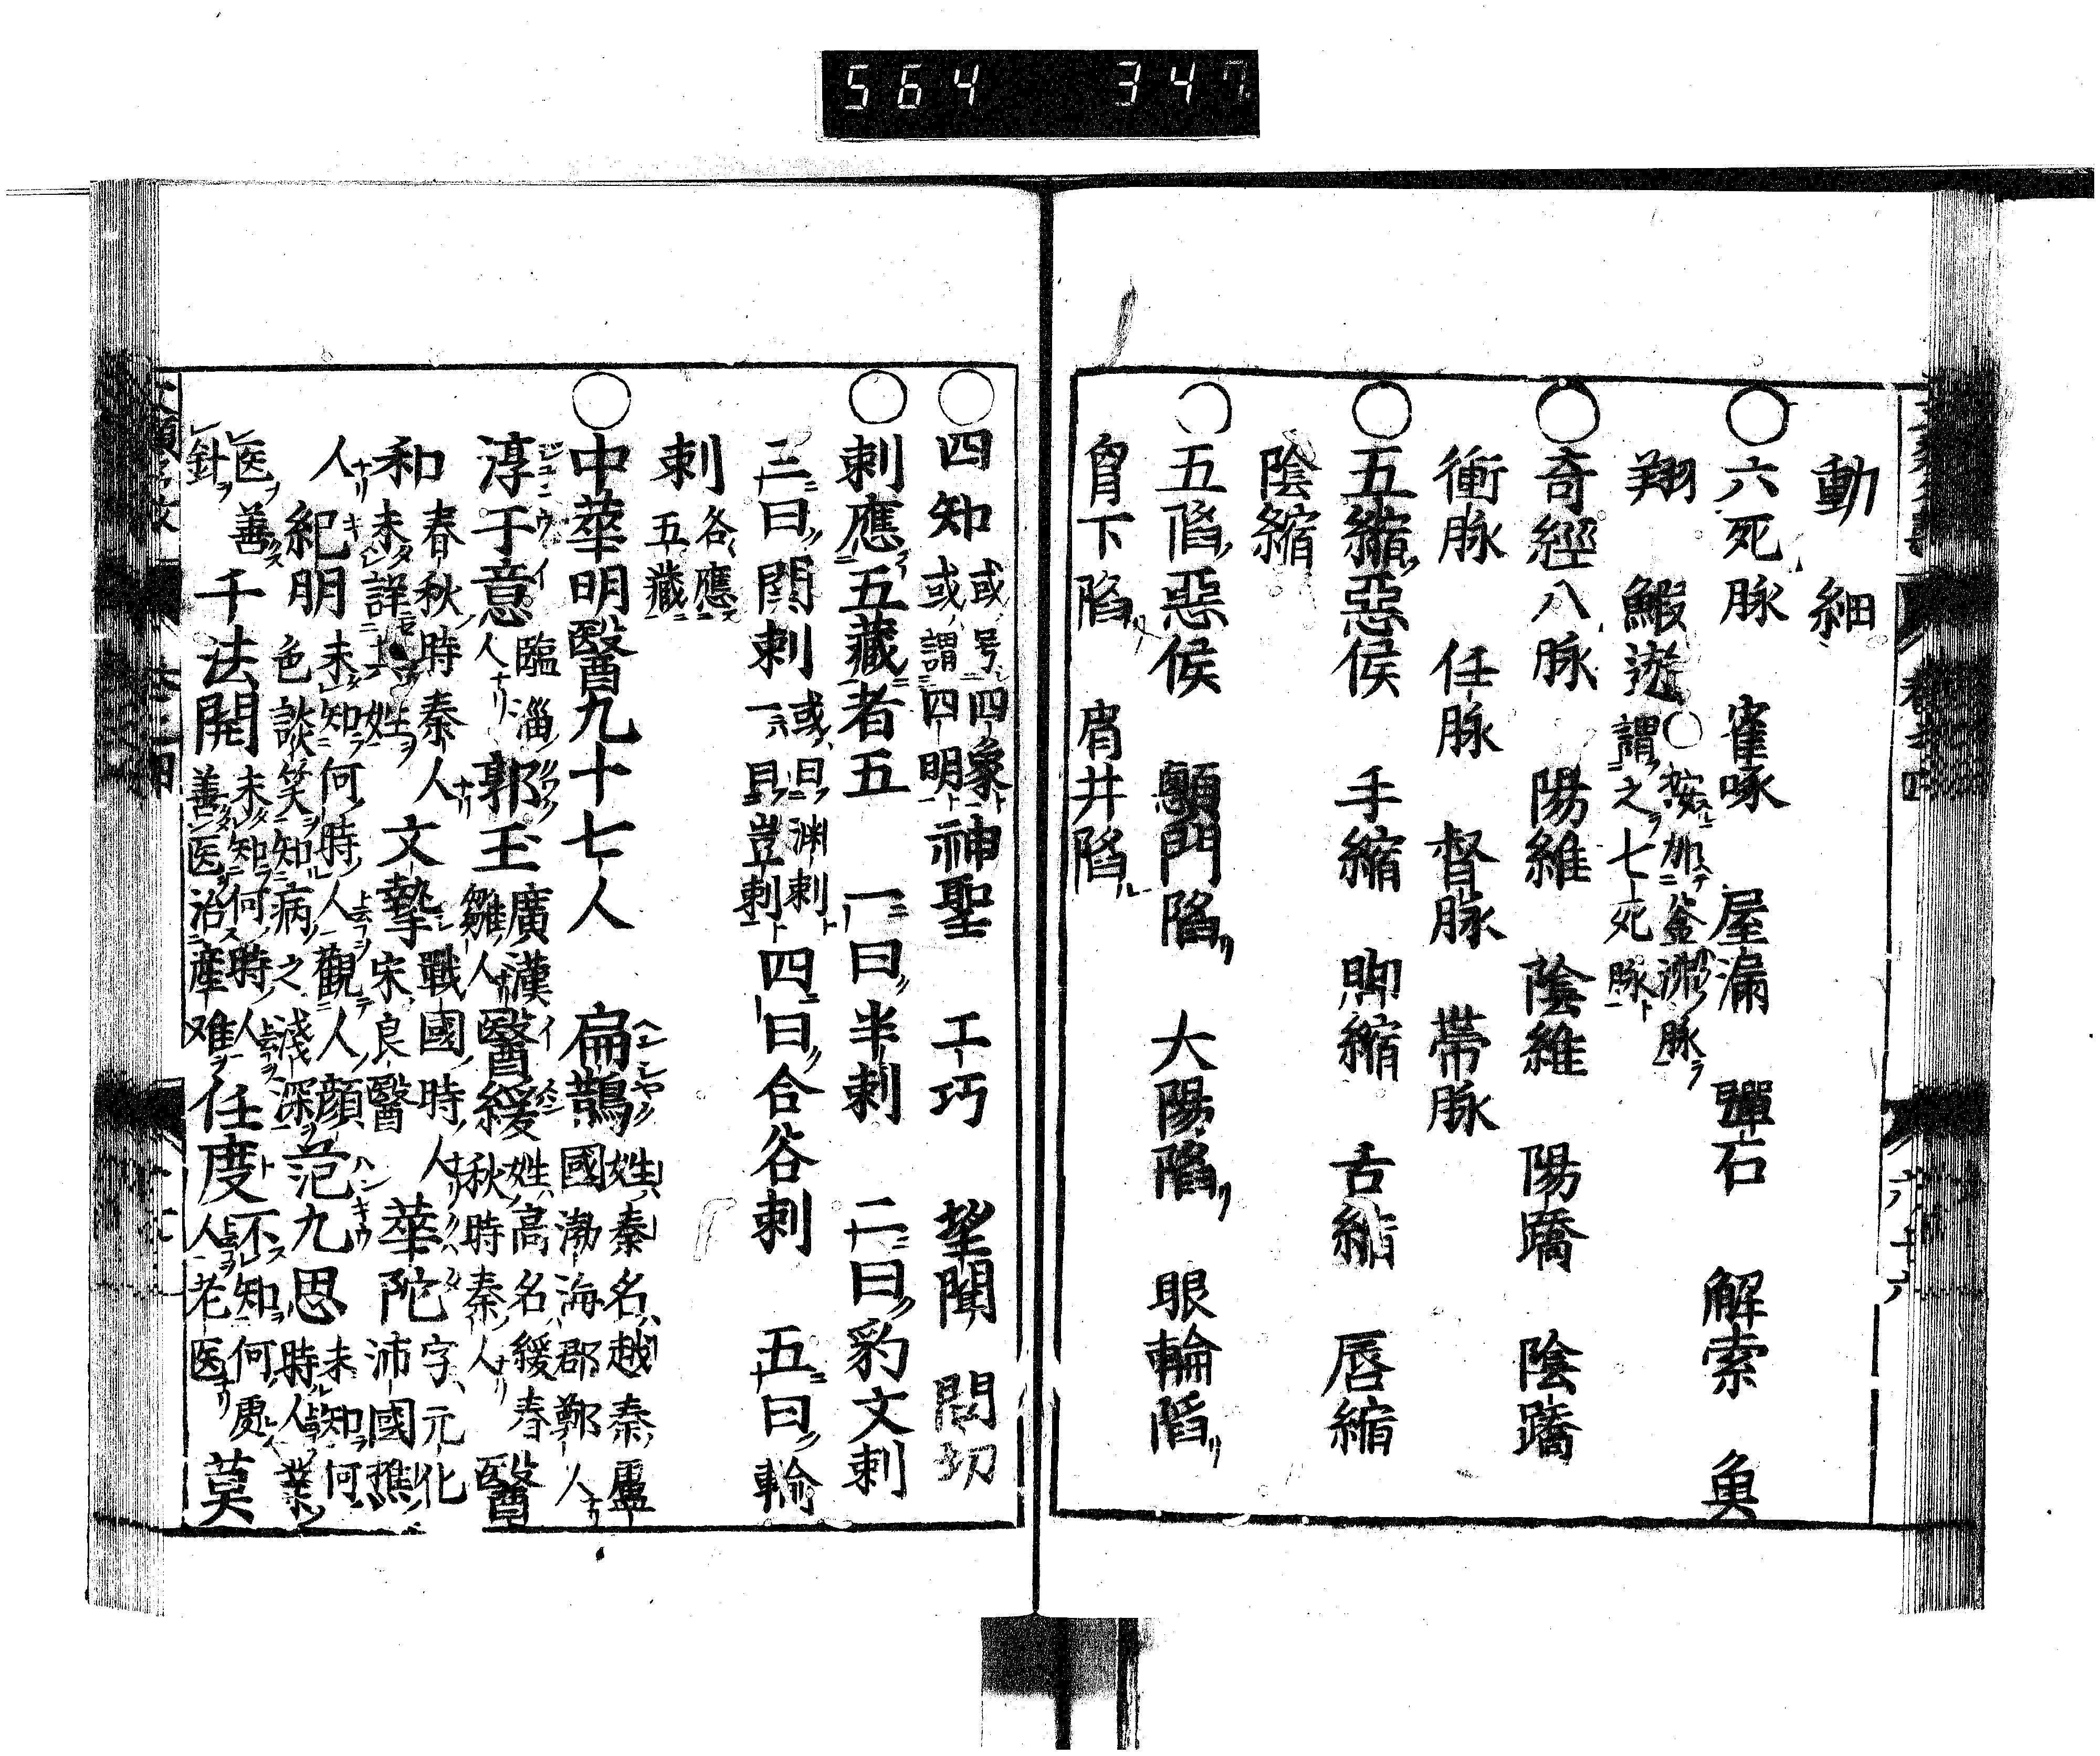 564 347
動 細
○六死脉 雀啄 屋漏 彈石 解索 魚
翔 鰕逰 ○按スルニ加ヘテ釜沸ノ脉ヲ
謂フ之ヲ七死脉ト
○奇經八脉 陽維 陰維 陽蹻 陰蹻
衝脉 任脉 督脉 帯脉
○五縮惡侯 手縮 脚縮 舌縮 唇縮
陰縮
○五陷惡侯 顖門陷リ 大陽陷リ 眼輪陷リ
胷下陷リ 肩井陷ル
○四知 或ハ号シ四象ト
或ハ謂フ四明ト 神聖 工巧 望聞 問切
○刺應スル五藏ニ者五 一ニ曰ク半刺 二ニ曰ク豹文刺
三ニ曰ク関刺 或ハ曰ヒ渊刺ト
一ニ曰フ豈刺ト 四ニ曰ク合谷刺 五ニ曰ク輪
刺 各〻應ス
五藏ニ
○中華明醫九十七人 扁鵲 姓ハ秦名ハ越秦盧
國渤海郡鄭人ナリ
淳于意 臨淄ノ
人ナリ 郭玉 廣漢
雒人ナリ 醫緩 姓ハ高名ハ緩春
秋時秦人ナリ 醫
和 春秋ノ時秦人ナリ
未タ詳ニ其姓ヲ 文摯 戰國ノ時
宋良醫人ナリ 華陀 字元化
沛國樵
人ナリ 紀朋 未知何時人觀人顔
色談笑知病之浅深 范九思 未知何
時人業
医ヲ善
針ヲ 于法開 未知何時人
善医治産难 任度 不知何處
人老医ナリ 莫